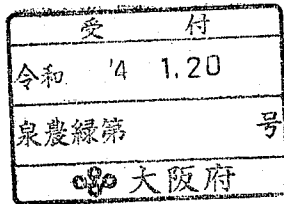 受 付
令和 '4 1.20
泉農緑第 号
大阪府